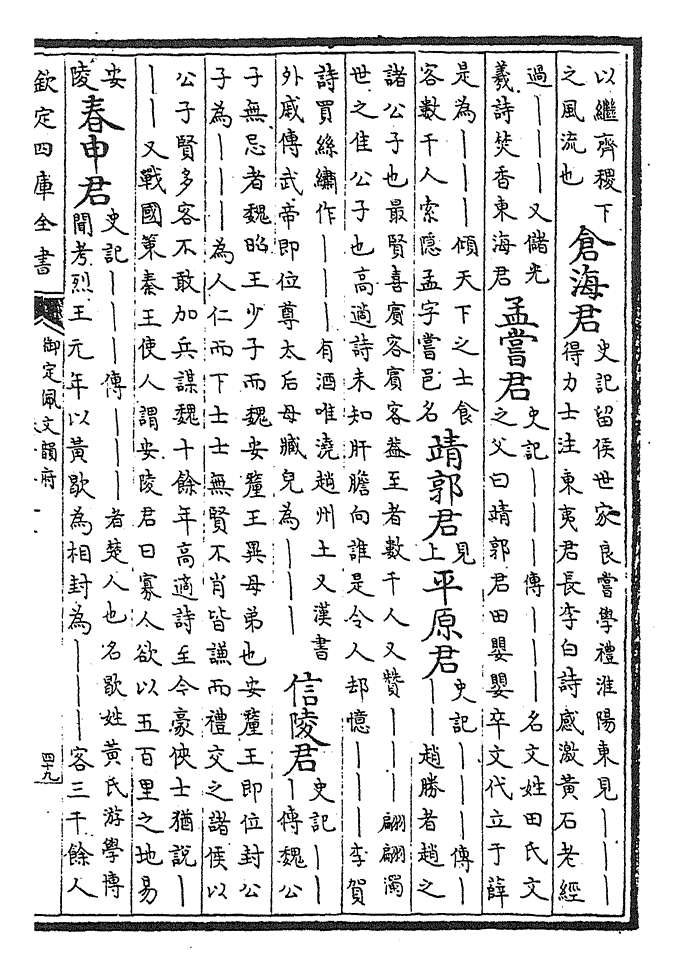 以繼齊稷下
之風流也
倉海君
史記留侯世家良嘗學禮淮陽東見｜｜｜
得力士注東夷君長李白詩感激黃石老經
過｜｜｜又儲光
羲詩焚香東海君
孟嘗君
史記｜｜｜傳｜｜｜名文姓田氏文
之父曰靖郭君田嬰嬰卒文代立于薛
是為｜｜｜傾天下之士食
客數千人索隱孟字嘗邑名
靖郭君
見
上
平原君
史記｜｜｜傳｜
｜｜趙勝者趙之
諸公子也最賢喜賓客賓客蓋至者數千人又贊｜｜｜翩翩濁
世之佳公子也高適詩未知肝膽向誰是令人却憶｜｜｜李賀
詩買絲繡作｜｜｜有酒唯澆趙州土又漢書
外戚傳武帝即位尊太后母臧兒為｜｜｜
信陵君
史記｜｜
｜傳魏公
子無忌者魏昭王少子而魏安釐王異母弟也安釐王即位封公
子為｜｜｜為人仁而下士士無賢不肖皆謙而禮交之諸侯以
公子賢多客不敢加兵謀魏十餘年高適詩至今豪俠士猶說｜
｜｜又戰國策秦王使人謂安陵君曰寡人欲以五百里之地易
安
陵
春申君
史記｜｜｜傳｜｜｜者楚人也名歇姓黃氏游學博
聞考烈王元年以黃歇為相封為｜｜｜客三千餘人
欽定四庫全書
御定佩文韻府
四十九